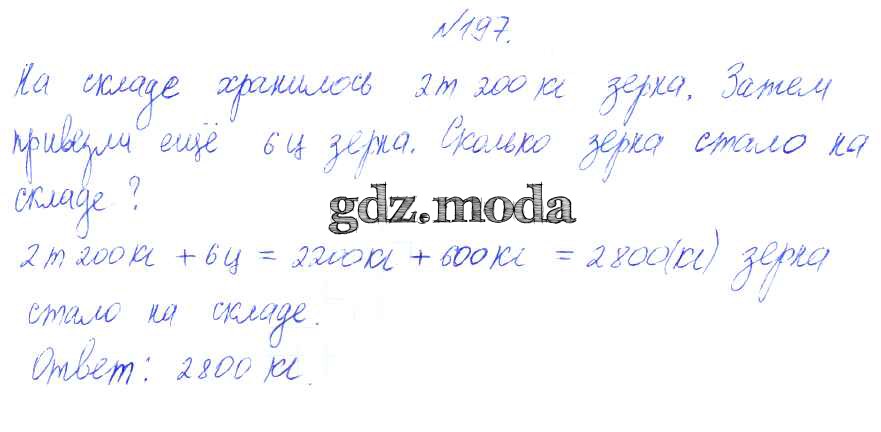 №197.
На складе хранилось 2т 200 кг зерна. Затем
привезли ещё 6 ц зерна. Сколько зерна стало на
складе?
gdz.moda
2т 200кг + 6ц = 2200кг + 600кг = 2800(кг) зерна
стало на складе.
Ответ: 2800 кг.